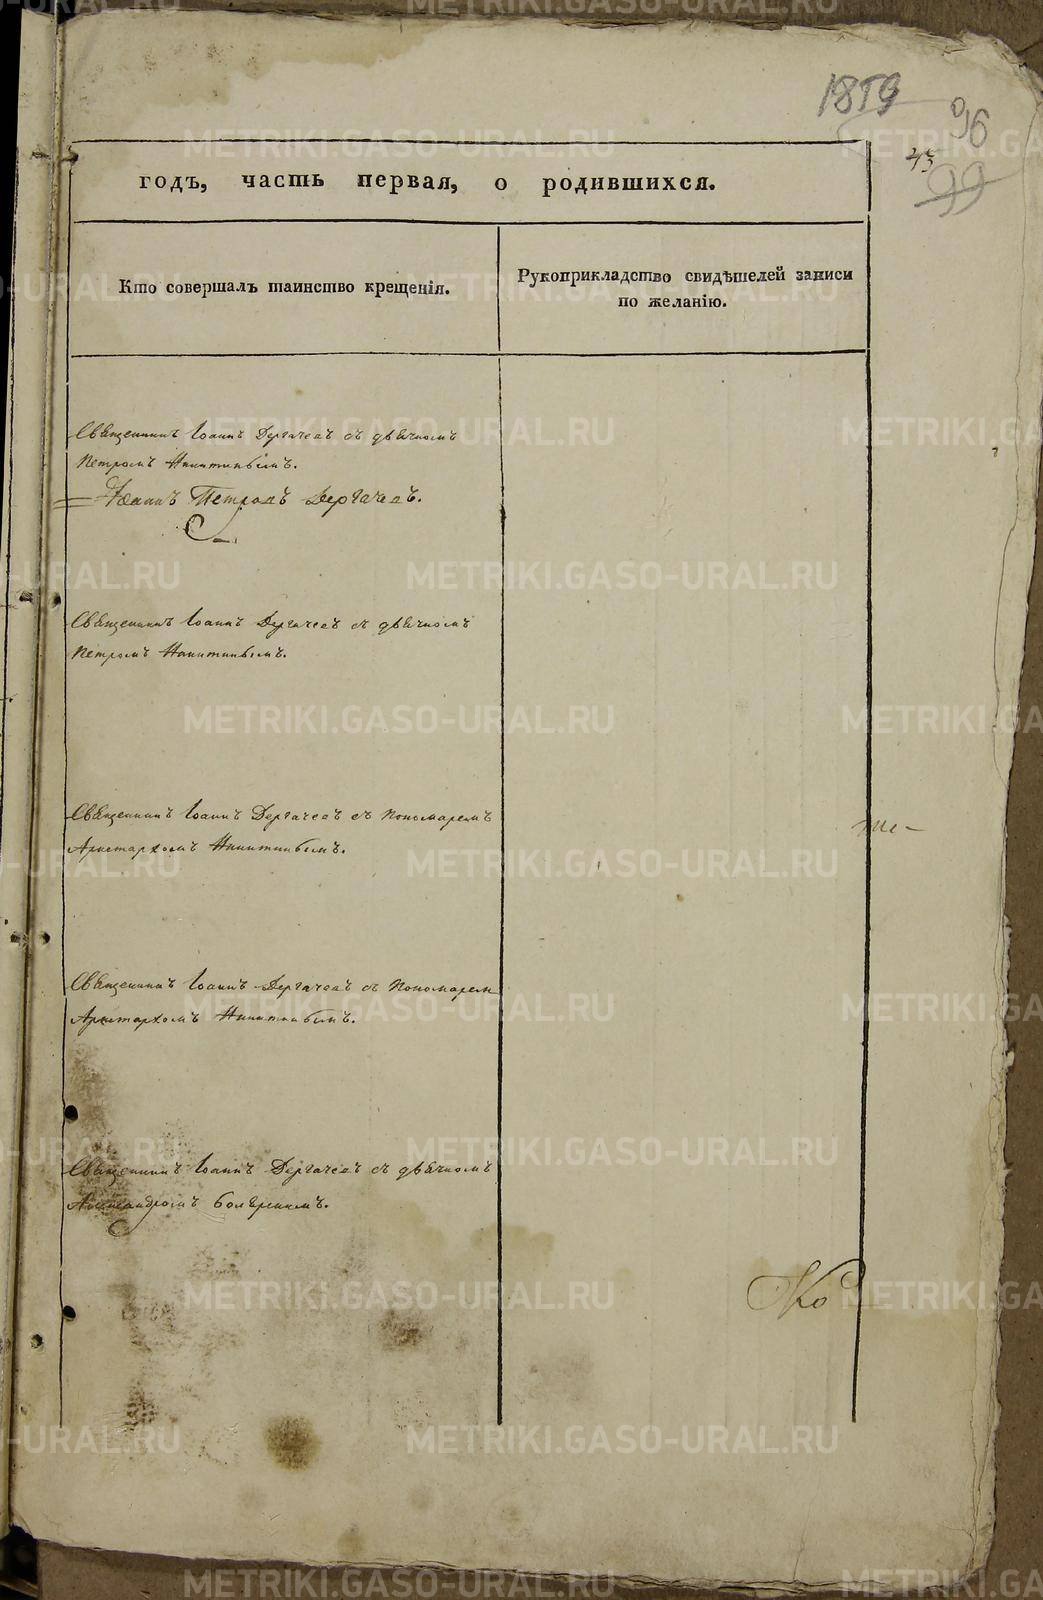 1859
96
43
99
годъ, часть первая, о родившихся.
Кто совершалъ таинство крещенія.
Рукоприкладство свидѣтелей записи
по желанію.
Священникъ Іоаннъ Дергачевъ съ дьячкомъ
Петромъ Никитинымъ.
Іоаннъ Петровъ Дергачевъ.
Священникъ Іоаннъ Дергачевъ съ дьячкомъ
Петромъ Никитинымъ.
Священникъ Іоаннъ Дергачевъ съ Пономаремъ
Аристархомъ Никитинымъ.
Священникъ Іоаннъ Дергачевъ съ Пономарем
Аристархомъ Никитинымъ.
Священникъ Іоаннъ Дергачевъ съ дьячкомъ
Александромъ
METRIKI.GASO-URAL.RU